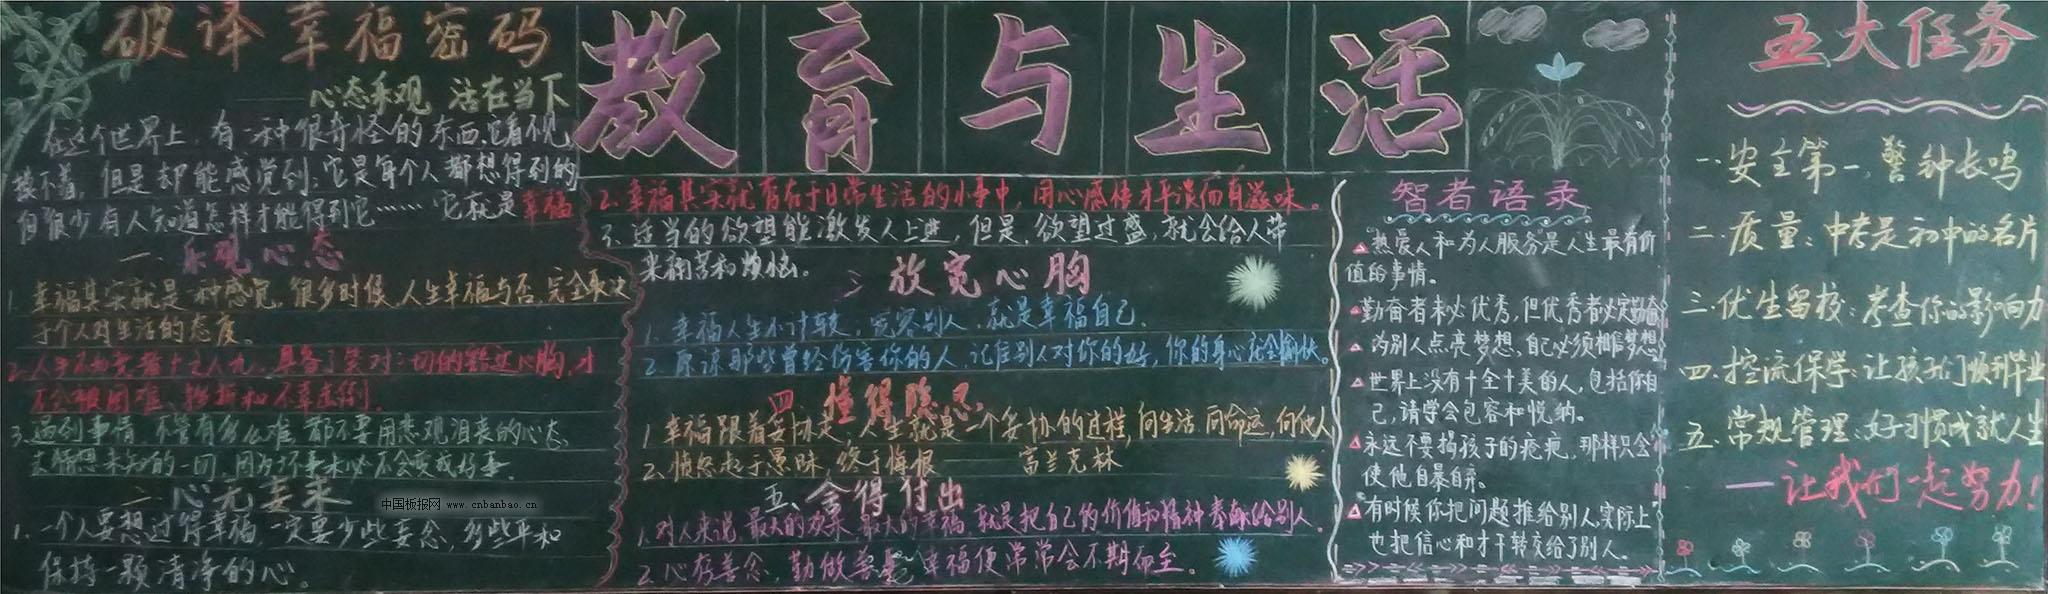 破译幸福密码
——心态乐观 活在当下
在这个世界上,有一种很奇怪的东西,它看不见
摸不着,但是却能感觉到;它是每个人都想得到的
但很少有人知道怎样才能得到它……它就是幸福
一、乐观心态
1.幸福其实就是一种感觉,很多时候,人生幸福与否,完全取决
于个人对生活的态度。
2.人生不如意者十之八九,具备了笑对一切的豁达心胸,才
不会被困难、挫折和不幸击倒。
3.遇到事情,不管有多么难,都不要用悲观沮丧的心态,
去猜想未知的一切,因为坏事未必不会变成好事
二、心无妄求
1.一个人要想过得幸福,一定要少些妄念,多些平和
保持一颗清净的心。
中国板报网 www.cnbanbao.cn
教育与生活
2.幸福其实就存在于日常生活的小事中,用心感悟才平淡而有滋味。
3.适当的欲望能激发人上进,但是,欲望过盛,就会给人带
来痛苦和烦恼。
三 放宽心胸
1.幸福人生不计较,宽容别人,就是幸福自己。
2.原谅那些曾经伤害你的人,记住别人对你的好,你的身心就会愉快。
四 懂得隐忍
1.幸福跟着妥协走,人生就是一个妥协的过程,向生活 向命运,向他人
2.愤怒起于愚昧,终于悔恨——富兰克林
五、舍得付出
1.对人来说,最大的欢乐,最大的幸福,就是把自己的价值和精神奉献给别人。
2.心存善念,勤做善事,幸福便常常会不期而至。
智者语录
热爱人和为人服务是人生最有价
值的事情。
勤奋者未必优秀,但优秀者必定勤奋
为别人点亮梦想,自己必须相信梦想
世界上没有十全十美的人,包括你自
己,请学会包容和悦纳。
永远不要揭孩子的疮疤,那样只会
使他自暴自弃。
有时候你把问题推给别人,实际上
也把信心和才干转交给了别人。
五大任务
一.安全第一,警钟长鸣
二.质量:中考是初中的名片
三.优生留校:考查你的影响力
四.控流保学:让孩子们顺利毕业
五.常规管理:好习惯成就人生
—让我们一起努力!